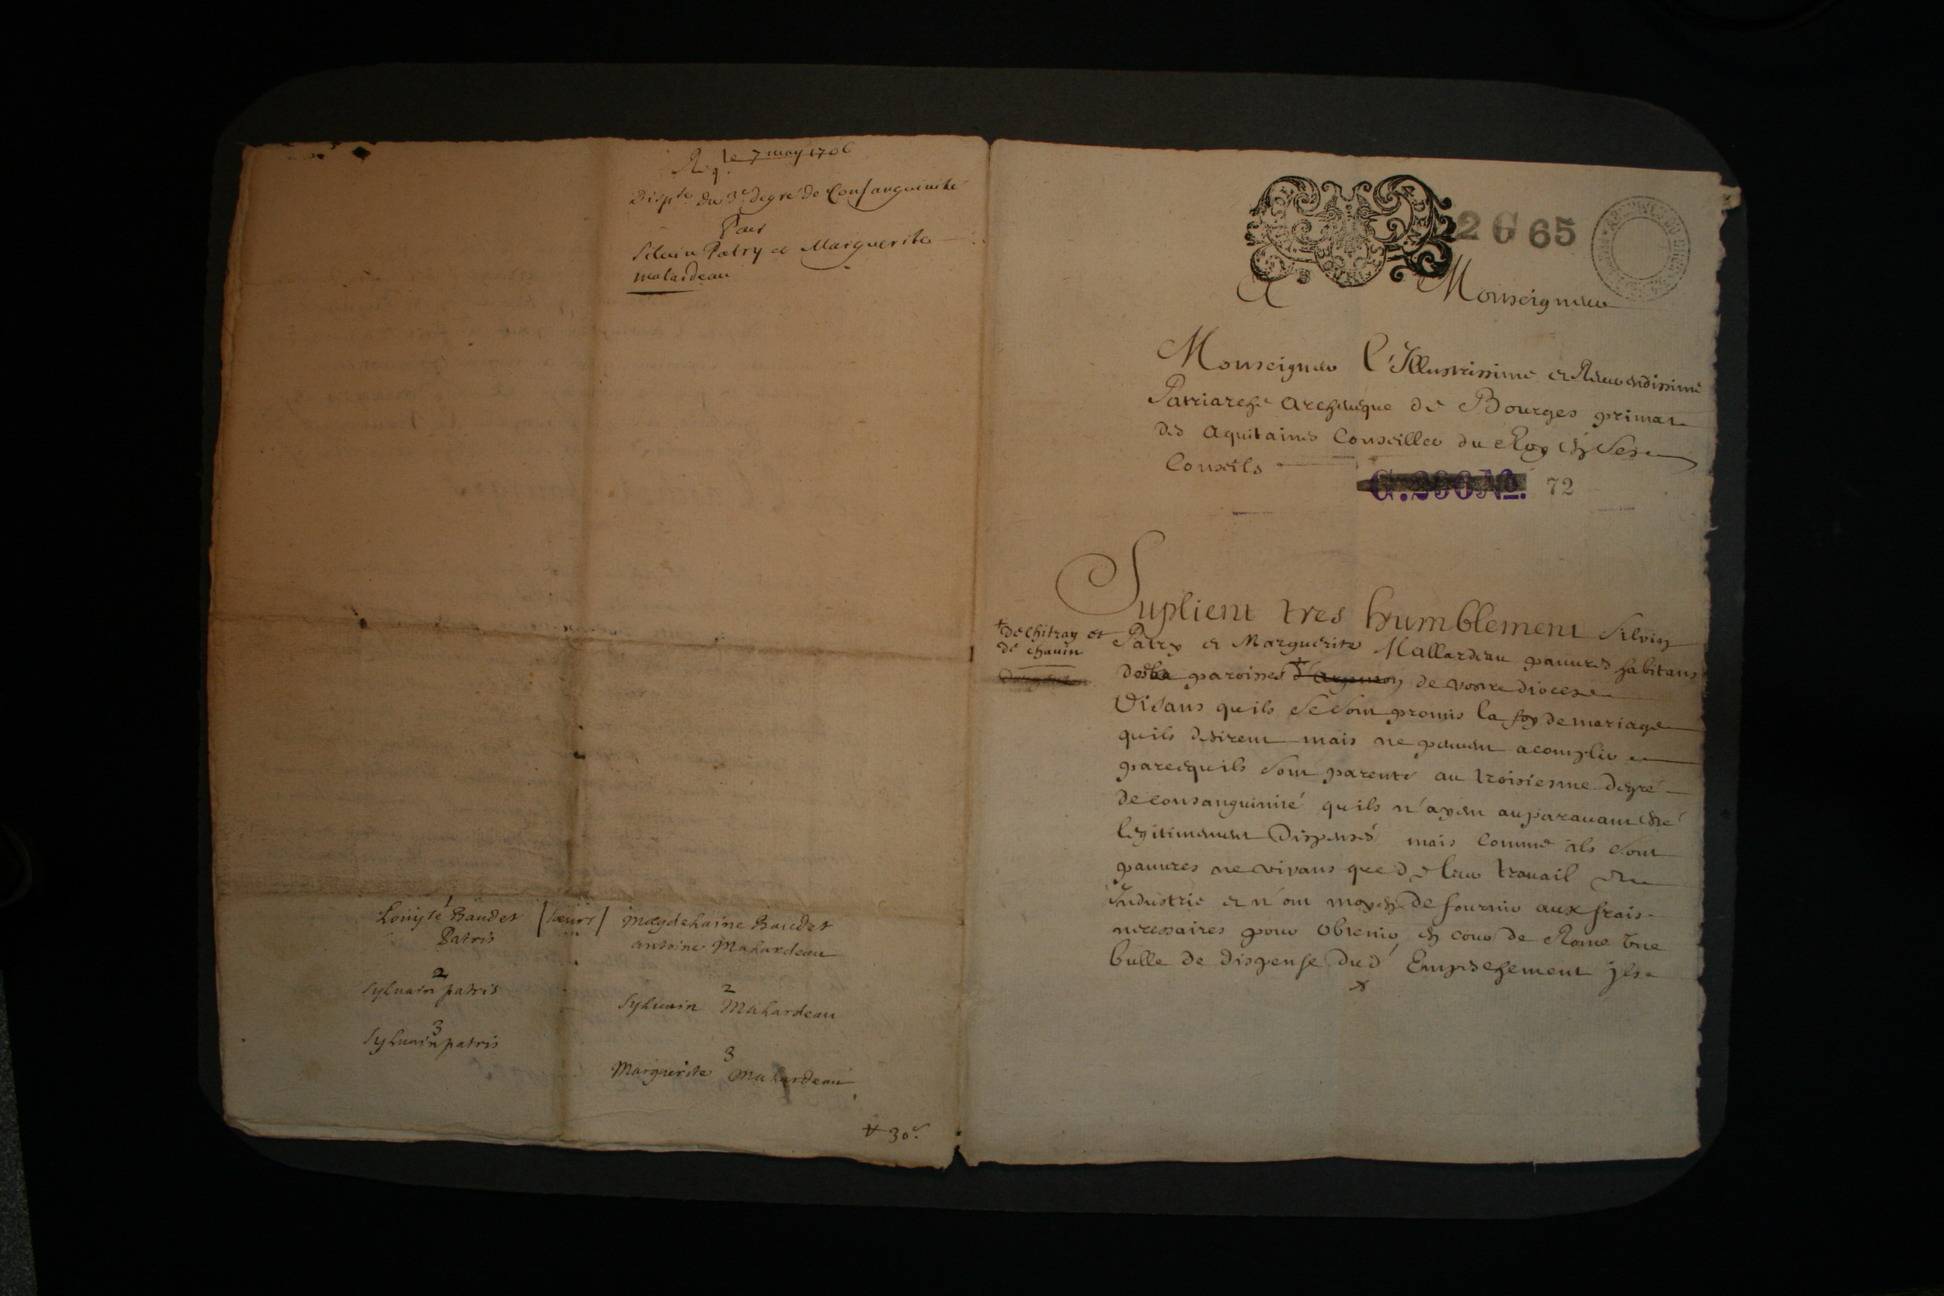 R. q. le 7 may 1706
Dispse du 3e degré de Consanguinité
Pour
Silvin Patry et Marguerite
malardeau
1
Louyse Baudet / sœurs / Magdelaine Baudet
Patris antoine Malardeau
2
Sylvain patris
2
Sylvain Malardeau
3
Sylvain patris
3
Marguerite Malardeau
30s
2 G 65
A Monseigneur
Monseigneur l'Illustrissime et Reverendissime
Patriarche archevesque de Bourges primat
des aquitaines Conseiller du Roy en Ses
Conseils
G. 290 No. 72
Suplient tres humblement Silvin
+ de chitray et
de chavin
Patry et Marguerite Mallardeau pauvres habitans
des paroisses + d'argenton de vostre diocese
Disans quils se sont promis la foy de mariage
quils desirent mais ne peuvent acomplir
parcequils sont parents au troisiesme degré
de consanguinité quils n'ayent auparavant esté
legitimement Dispensés mais comme ils sont
pauvres ne vivans que de leur travail et
Industrie et n'ont moyen de fournir aux frais
necessaires pour obtenir en cour de Rome une
bulle de dispense dud Empeschement ils